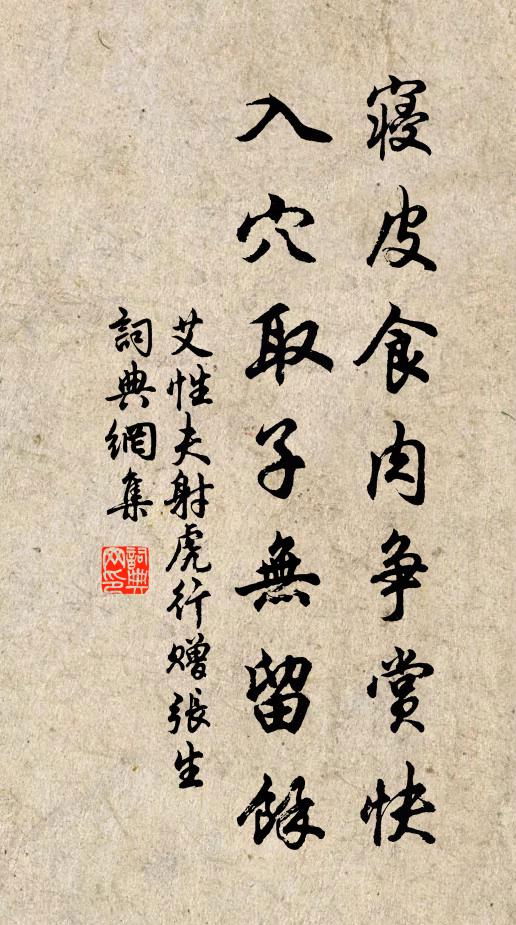 寢皮食肉争賞快
入穴取子無留餘
艾性夫射虎行赠張生
詞典網集
詞典网印